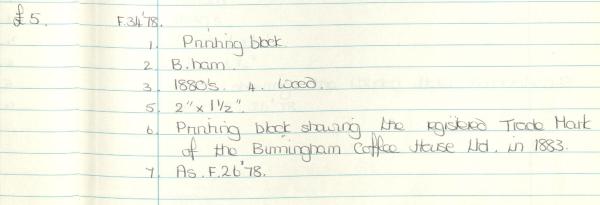 £5. F.34'78.
1. Printing block
2. B.ham.
3. 1880's. 4. Wood.
5. 2" x 1 1/2".
6. Printing block showing the registered Trade Mark
of the Birmingham Coffee House Ltd. in 1883.
7. As. F.26'78.